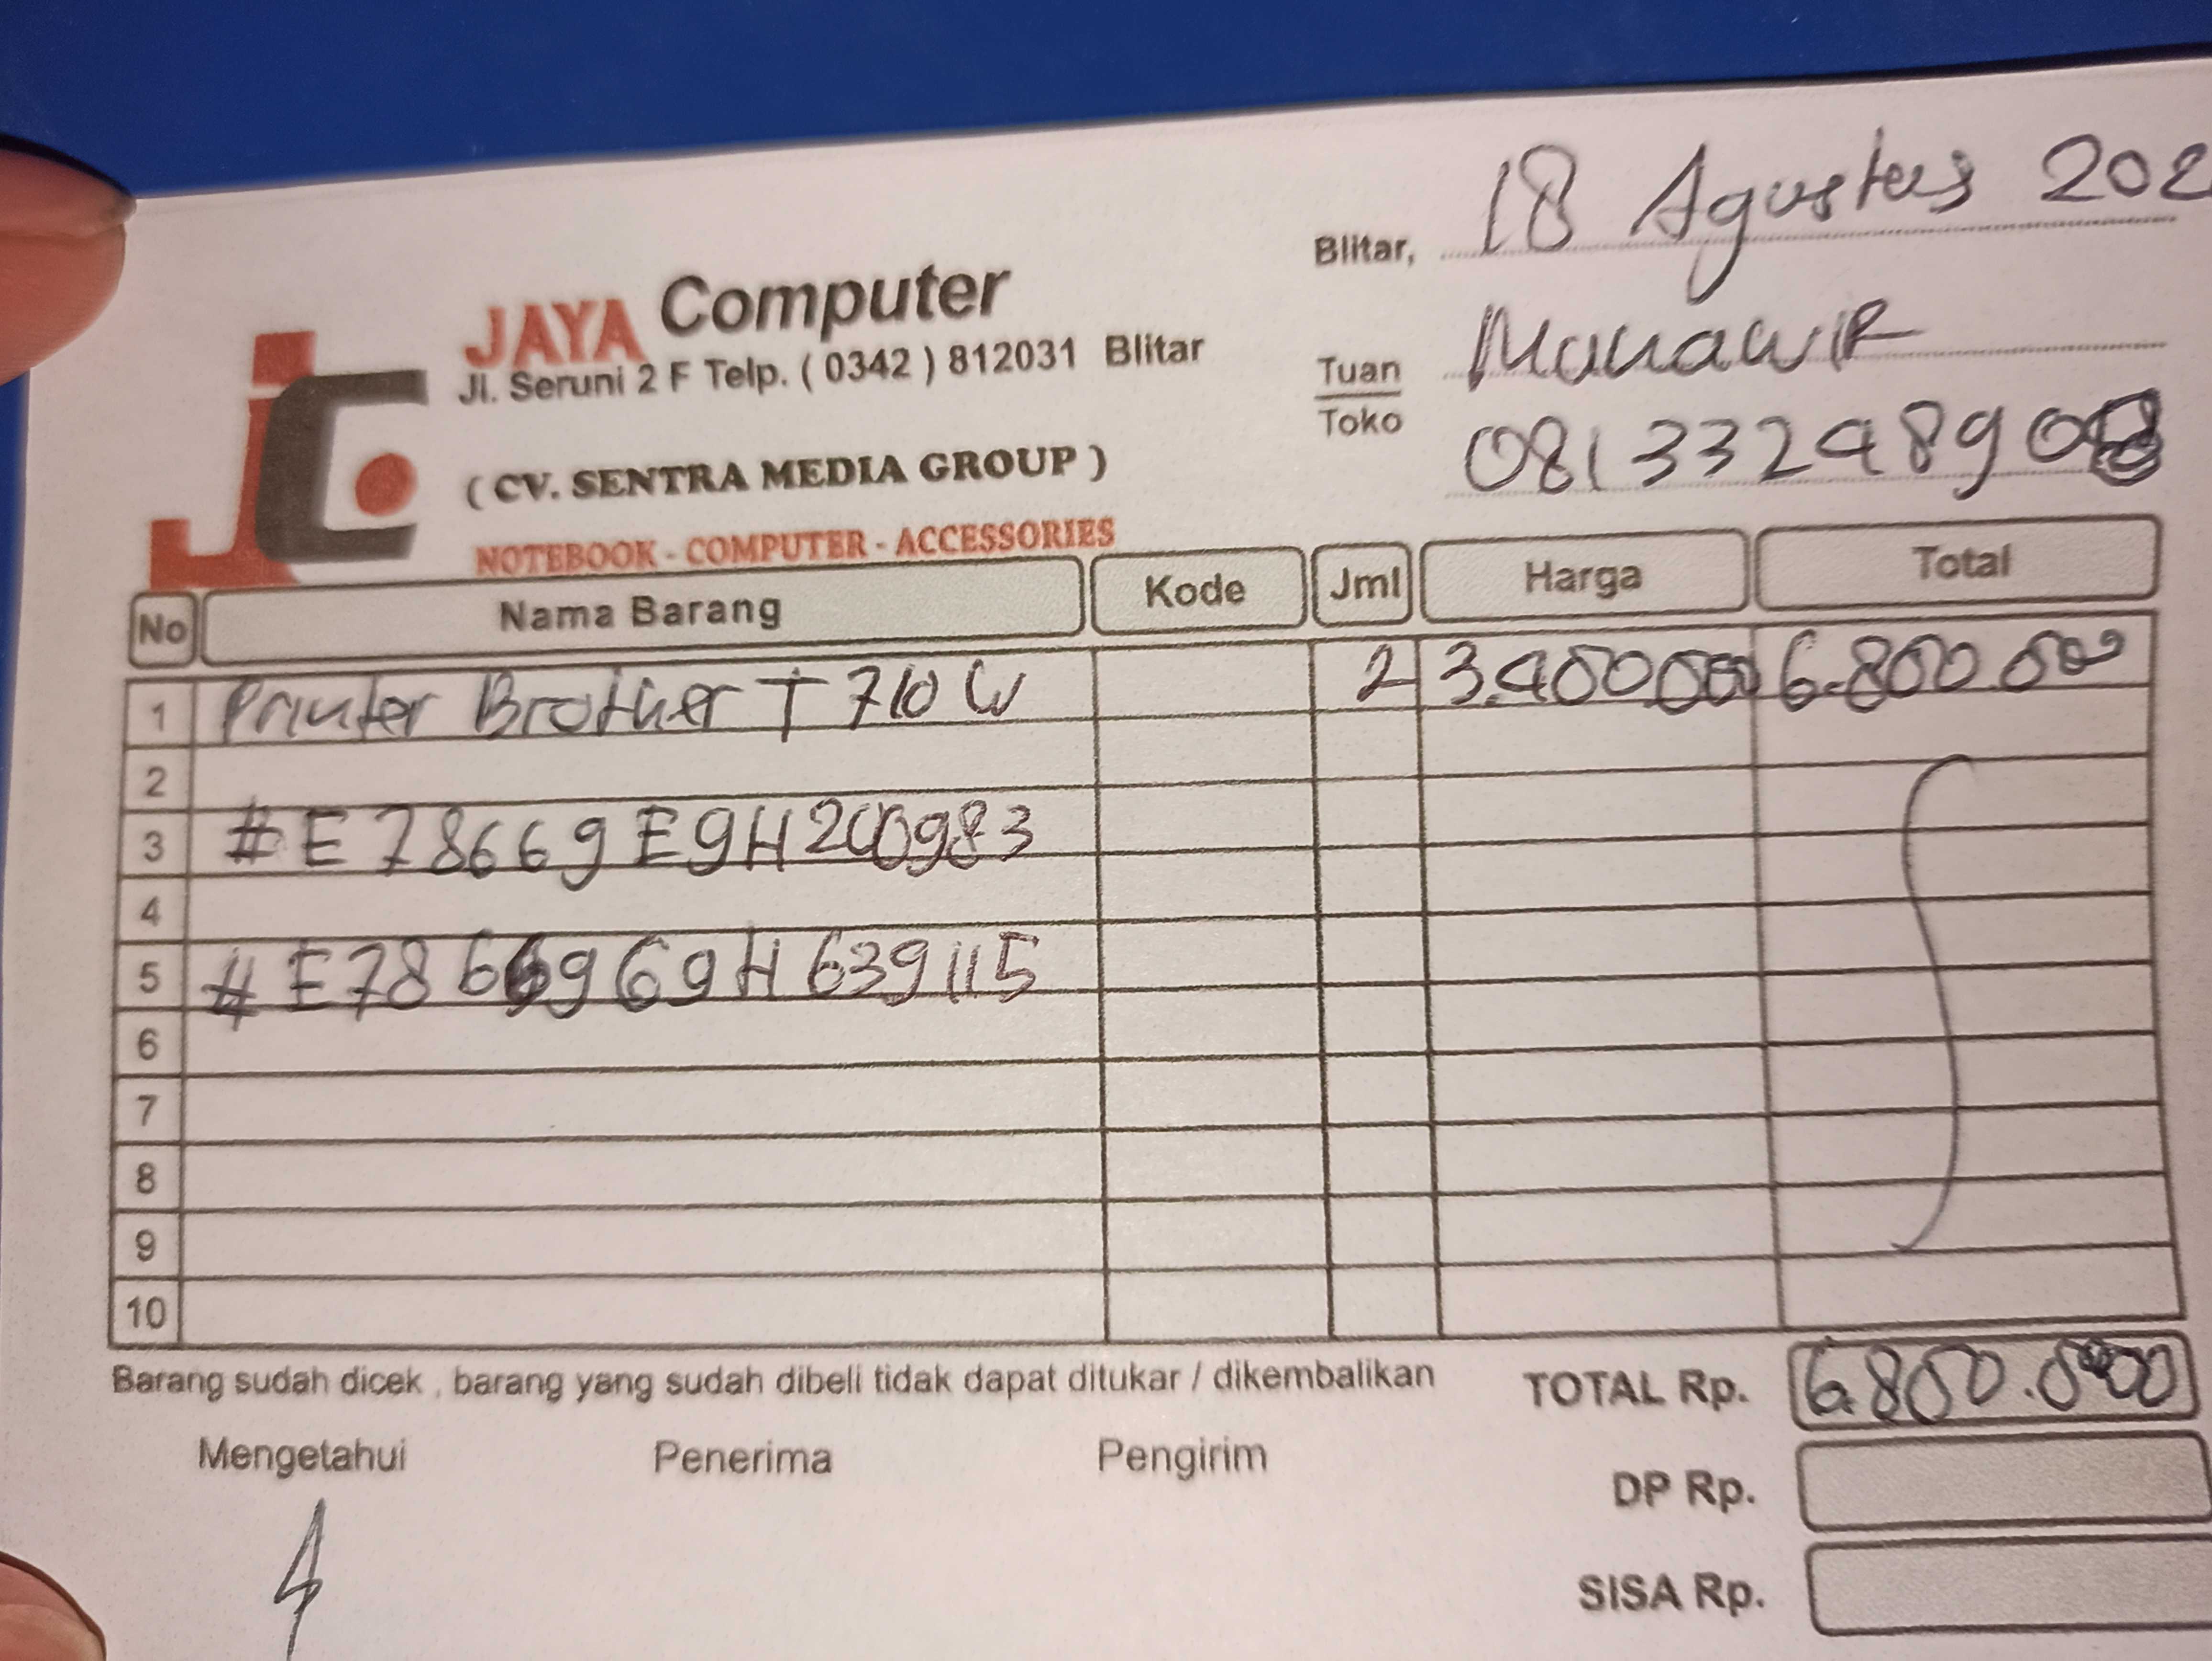 Blitar, 18 Agustus 202
JAYA Computer
Jl. Seruni 2 F Telp. ( 0342 ) 812031 Blitar
( CV. SENTRA MEDIA GROUP )
NOTEBOOK - COMPUTER - ACCESSORIES
Tuan Munawir
Toko
JC
No Nama Barang Kode Jml Harga Total
1 Printer Brother T 710 W 2 3.400.000 6.800.000
2
3 #E78669E9H200983
4
5
6
7
8
9
10
Barang sudah dicek , barang yang sudah dibeli tidak dapat ditukar / dikembalikan
TOTAL Rp. 6.800.000
Mengetahui Penerima Pengirim
DP Rp.
SISA Rp.